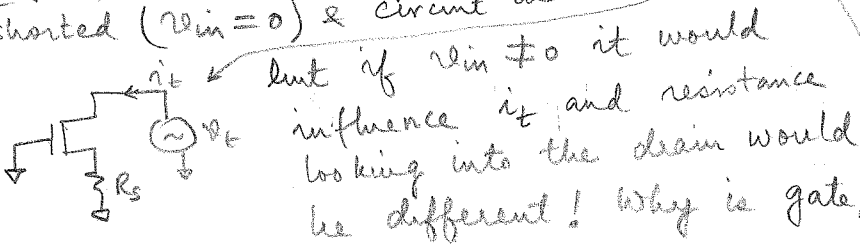 shorted (vin = 0) & circuit
but if vin ≠ 0 it would
it
influence it and resistance
vt
looking into the drain would
Rs
be different! Why is gate